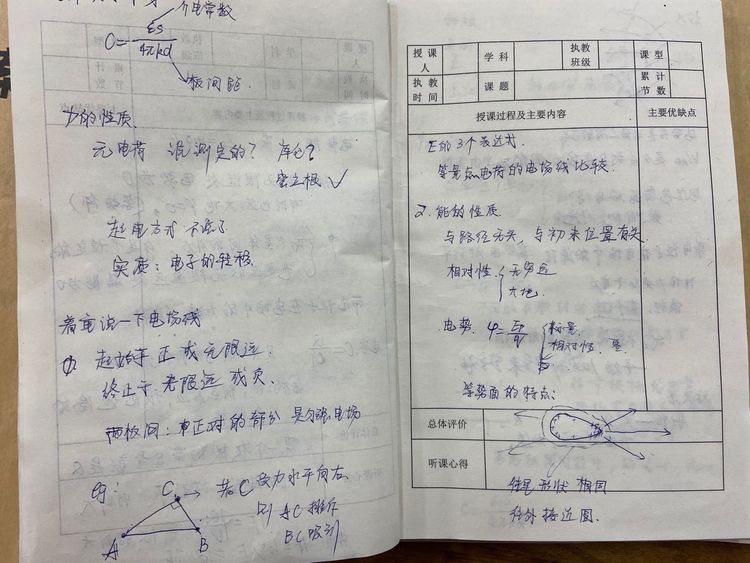 介电常数
C= εs/4πkd
板间距
力的性质.
元电荷 谁测定的? 库仑?
密立根 ✓
起电方式 不读了
实质: 电子的转移.
着重说一下电场线
① 起始于 正或无限远.
终止于 无限远 或负.
两板间: 正对的部分 是匀强电场
eg:
C → 若C受力水平向右.
则 AC排斥
BC吸引
A B
授课人 学科 执教班级 课型
执教时间 课题 累计节数
授课过程及主要内容 主要优缺点
1. E的3个表达式.
等量点电荷的电场线比较.
2. 能的性质.
与路径无关, 与初末位置有关.
相对性. { 无穷远
大地.
电势. φ= Ep/q { 标量.
相对性.
等势面的特点:
总体评价
听课心得
形状 相同
外接近圆.